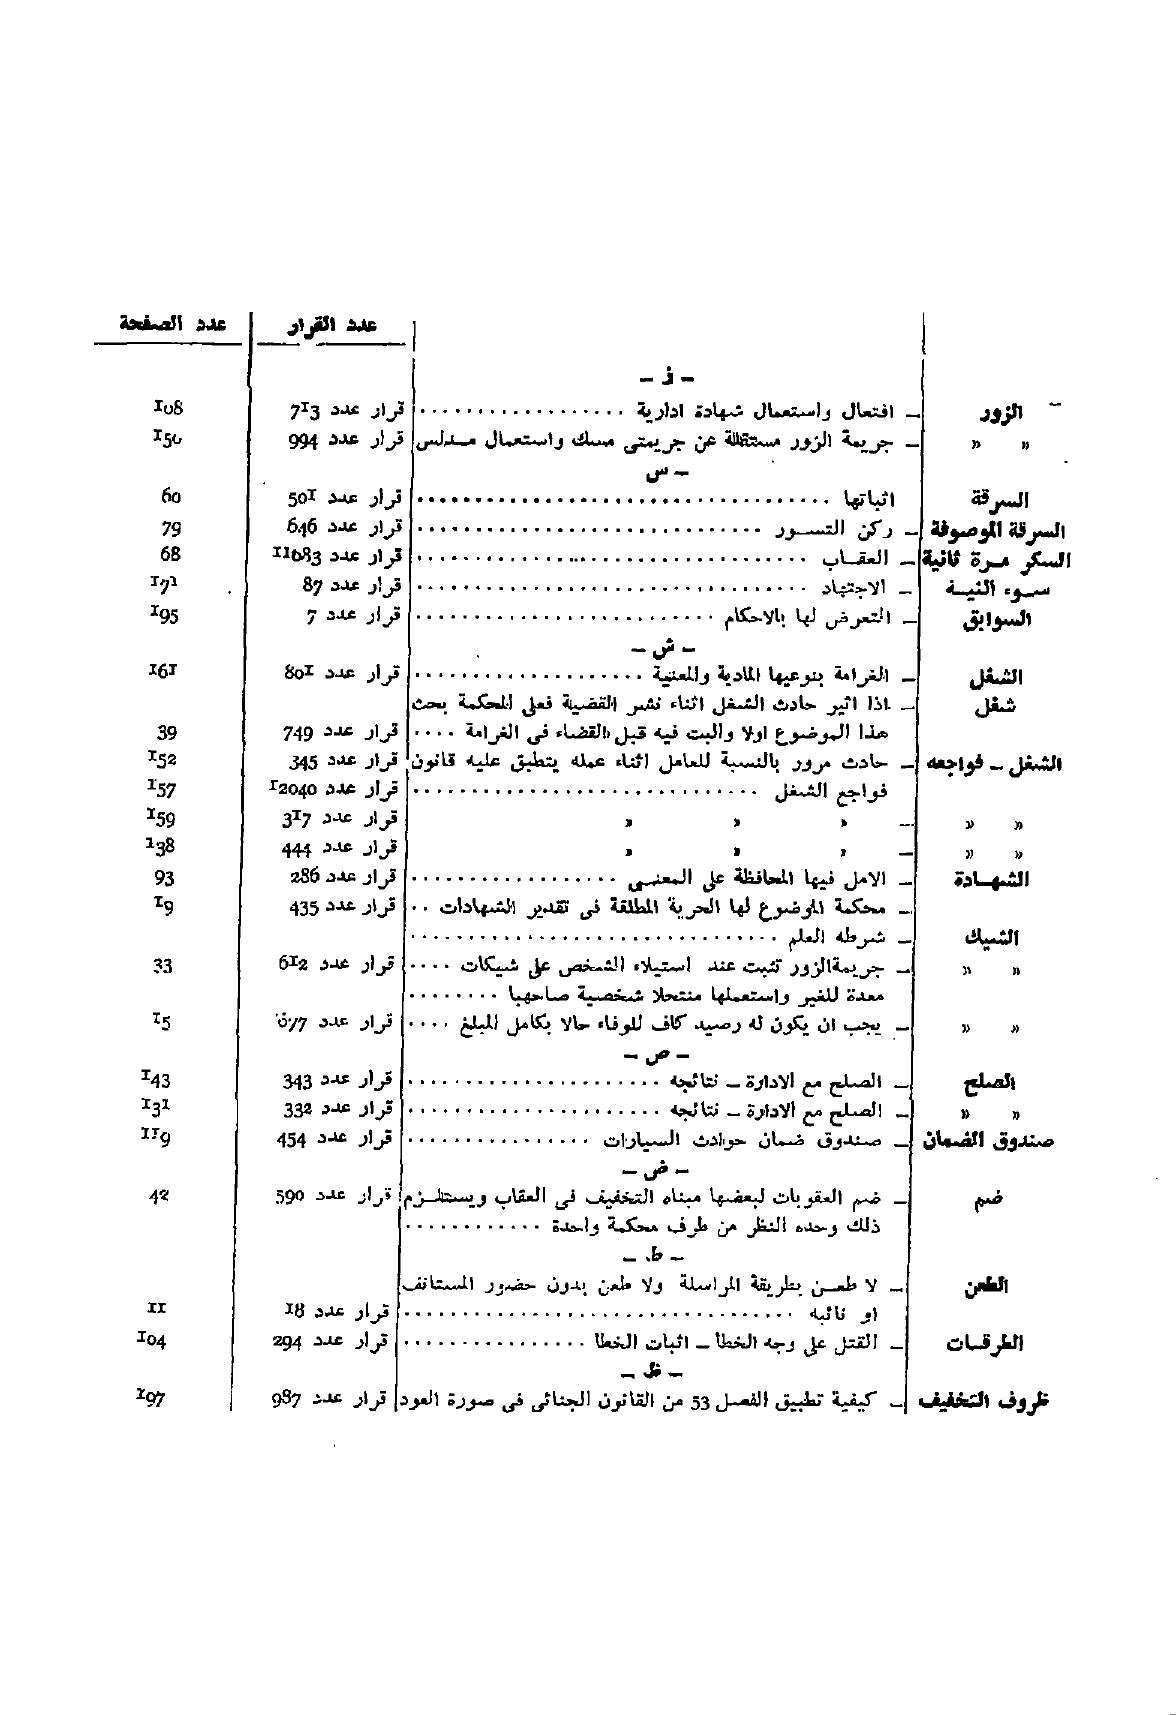 عدد القرار عدد الصفحة
– ز –
الزور – افتعال واستعمال شهادة ادارية .................. قرار عدد 713 108
» » – جريمة الزور مستقلة عن جريمتى مسك واستعمال مدلس قرار عدد 994 150
– س
السرقة اثباتها .................................. قرار عدد 501 60
السرقة الموصوفة – ركن التسور .............................. قرار عدد 646 79
السكر مرة ثانية – العقاب .................................. قرار عدد 11083 68
سوء النية – الاجتهاد .................................. قرار عدد 87 171
السوابق – التعرض لها بالاحكام ......................... قرار عدد 7 195
– ش –
الشغل – الغرامة بنوعيها المادية والمعنية .................... قرار عدد 801 161
شغل – اذا اثير حادث الشغل اثناء نشر القضية فعلى المحكمة بحث
هذا الموضوع اولا والبت فيه قبل القضاء فى الغرامة .... قرار عدد 749 39
الشغل – فواجعه – حادث مرور بالنسبة للعامل اثناء عمله يتطبق عليه قانون قرار عدد 345 152
فواجع الشغل .............................. قرار عدد 12040 157
» » – » » » قرار عدد 317 159
» » – » » » قرار عدد 444 138
الشهادة – الامل فيها المحافظة على المعنى .................. قرار عدد 286 93
– محكمة الموضوع لها الحرية المطلقة فى تقدير الشهادات .. قرار عدد 435 19
الشيك – شرطه العلم ................................
» » – جريمة الزور تثبت عند استيلاء الشخص على شيكات .... قرار عدد 612 33
معدة للغير واستعملها منتحلا شخصية صاحبها ........
» » – يجب ان يكون له رصيد كاف للوفاء حالا بكامل المبلغ .... قرار عدد 677 15
– ص –
الصلح – الصلح مع الادارة – نتائجه ...................... قرار عدد 343 143
» » – الصلح مع الادارة – نتائجه ...................... قرار عدد 332 131
صندوق الضمان – صندوق ضمان حوادث السيارات ................ قرار عدد 454 119
– ض –
ضم – ضم العقوبات لبعضها مبناه التخفيف فى العقاب ويستلزم قرار عدد 590 42
ذلك وحده النظر من طرف محكمة واحدة ............
– ط –
الطعن – لا طعن بطريقة المراسلة ولا طعن بدون حضور المستانف
او نائبه .................................. قرار عدد 18 11
الطرقات – القتل على وجه الخطا – اثبات الخطا ................ قرار عدد 294 104
– ظ –
ظروف التخفيف – كيفية تطبيق الفصل 53 من القانون الجنائى فى صورة العود قرار عدد 987 197